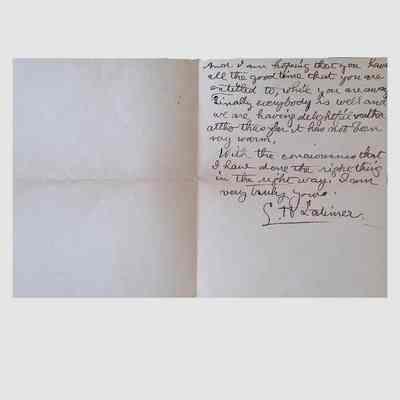 And I am hoping that you have
all the good time that you are
entitled to, while you are away
Finally everybody is well and
we are having delightful weather
altho thus far it has not been
very warm.
With the consciousness that
I have done the right thing
in the right way. I am
very truly yours.
Latimer.